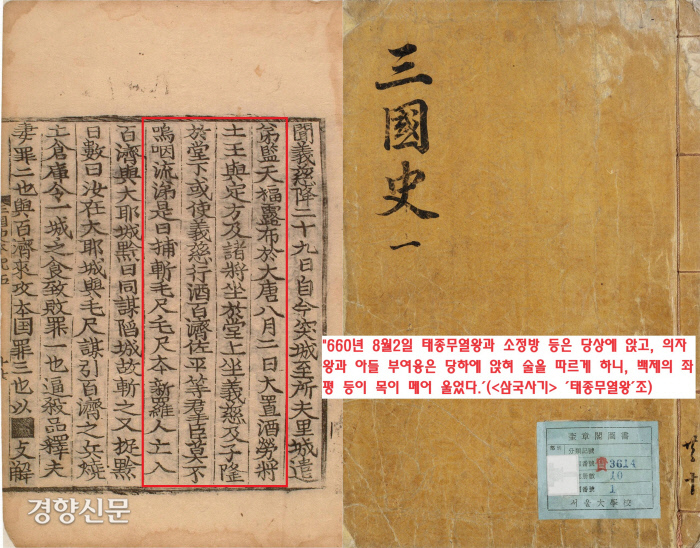 聞義慈降二十九日自今突城至所夫里城遣
苐監天福露布於大唐八月二日大置酒勞將
士王與定方及諸將坐於堂上坐義慈及子隆
於堂下或使義慈行酒百濟佐平等羣臣莫不
嗚咽流涕是日捕斬毛尺毛尺本新羅人亡入
百濟與大耶城黔日同謀陷城故斬之又捉黔
日數曰汝在大耶城與毛尺謀引百濟之兵燒
亡倉庫令一城之食致敗罪一也逼殺品釋夫
妻罪二也與百濟來攻本国罪三也以 支解
三國史 一
"660년 8월2일 태종무열왕과 소정방 등은 당상에 앉고, 의자
왕과 아들 부여융은 당하에 앉혀 술을 따르게 하니, 백제의 좌
평 등이 목이 메어 울었다.´(<삼국사기> ´태종무열왕´조)
奎章閣圖書
分類記號
番號 貴 3614
冊數 10
番號 1
서울大學校
경향신문